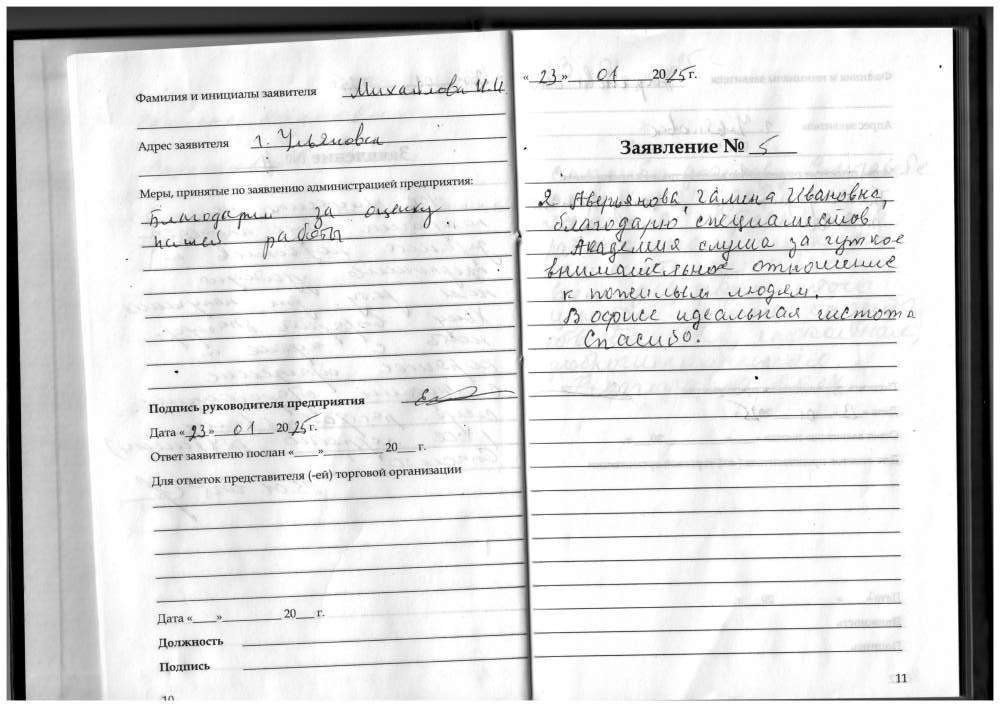 Фамилия и инициалы заявителя Михайлова И.И.
Адрес заявителя г. Ульяновск
Меры, принятые по заявлению администрацией предприятия:
Благодарим за оценку
нашей работы.
Подпись руководителя предприятия
Дата «23» 01 2025 г.
Ответ заявителю послан «___»__________ 20___ г.
Для отметок представителя (-ей) торговой организации
Дата «___»__________ 20___ г.
Должность
Подпись
10
«23» 01 2025 г.
Заявление № 5
Я Аверьянова Галина Ивановна,
благодарю специалистов
Академия слуха за чуткое
внимательное отношение
к пожилым людям.
В офисе идеальная чистота
Спасибо.
11